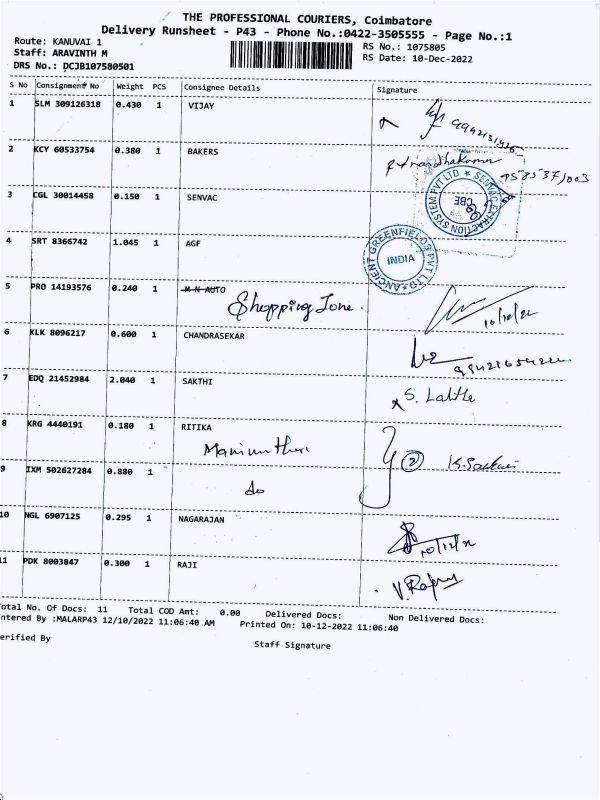 THE PROFESSIONAL COURIERS, Coimbatore
Delivery Runsheet - P43 - Phone No.:0422-3505555 - Page No.:1
Route: KANUVAI 1
Staff: ARAVINTH M
DRS No.: DCJB107580501
RS No.: 1075805
RS Date: 10-Dec-2022
S No Consignment No Weight PCS Consignee Details Signature
1 SLM 309126318 0.430 1 VIJAY
2 KCY 60533754 0.380 1 BAKERS
3 CGL 30014458 0.150 1 SENVAC
SENVAC EXTRACTION SYSTEM PVT LTD
CBE
4 SRT 8366742 1.045 1 AGF
ANCIENT GREENFIELDS PVT LTD
INDIA
5 PRO 14193576 0.240 1 M N AUTO
Shopping Zone.
10/12/22
6 KLK 8096217 0.600 1 CHANDRASEKAR
7 EDQ 21452984 2.040 1 SAKTHI
S. Lalitha
8 KRG 4440191 0.180 1 RITIKA
9 IXM 502627284 0.880 1
do
10 NGL 6907125 0.295 1 NAGARAJAN
10/12/22
11 PDK 8003847 0.300 1 RAJI
Total No. Of Docs: 11 Total COD Amt: 0.00 Delivered Docs: Non Delivered Docs:
Entered By :MALARP43 12/10/2022 11:06:40 AM Printed On: 10-12-2022 11:06:40
Verified By Staff Signature